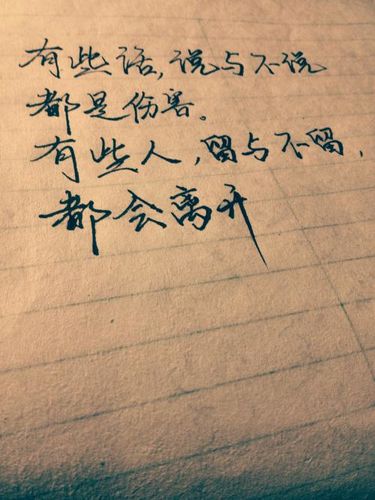 有些话,说与不说
都是伤害。
有些人,留与不留,
都会离开